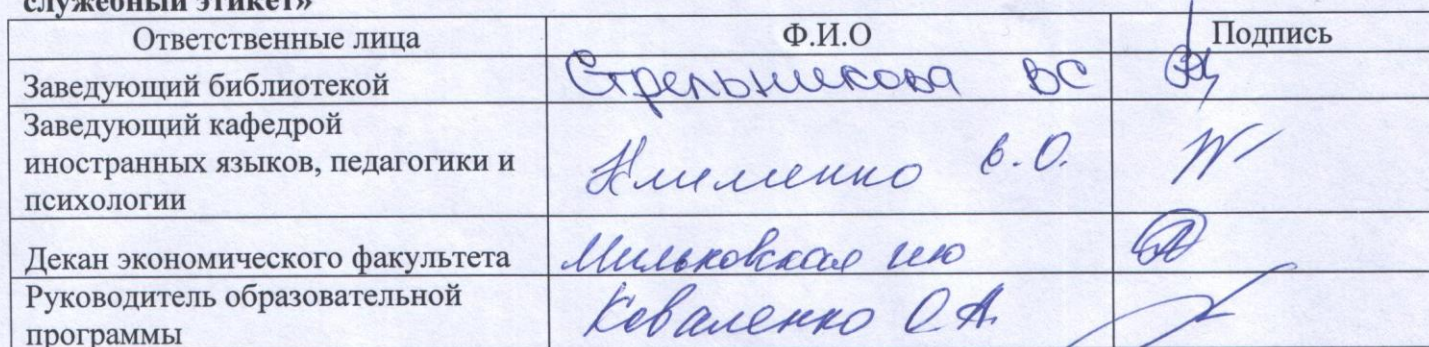 служебный этикет»
Ответственные лица Ф.И.О Подпись
Заведующий библиотекой Стрельникова ВС
Заведующий кафедрой
иностранных языков, педагогики и
психологии Клименко В.О.
Декан экономического факультета Мильковская ИЮ
Руководитель образовательной
программы Коваленко О.А.